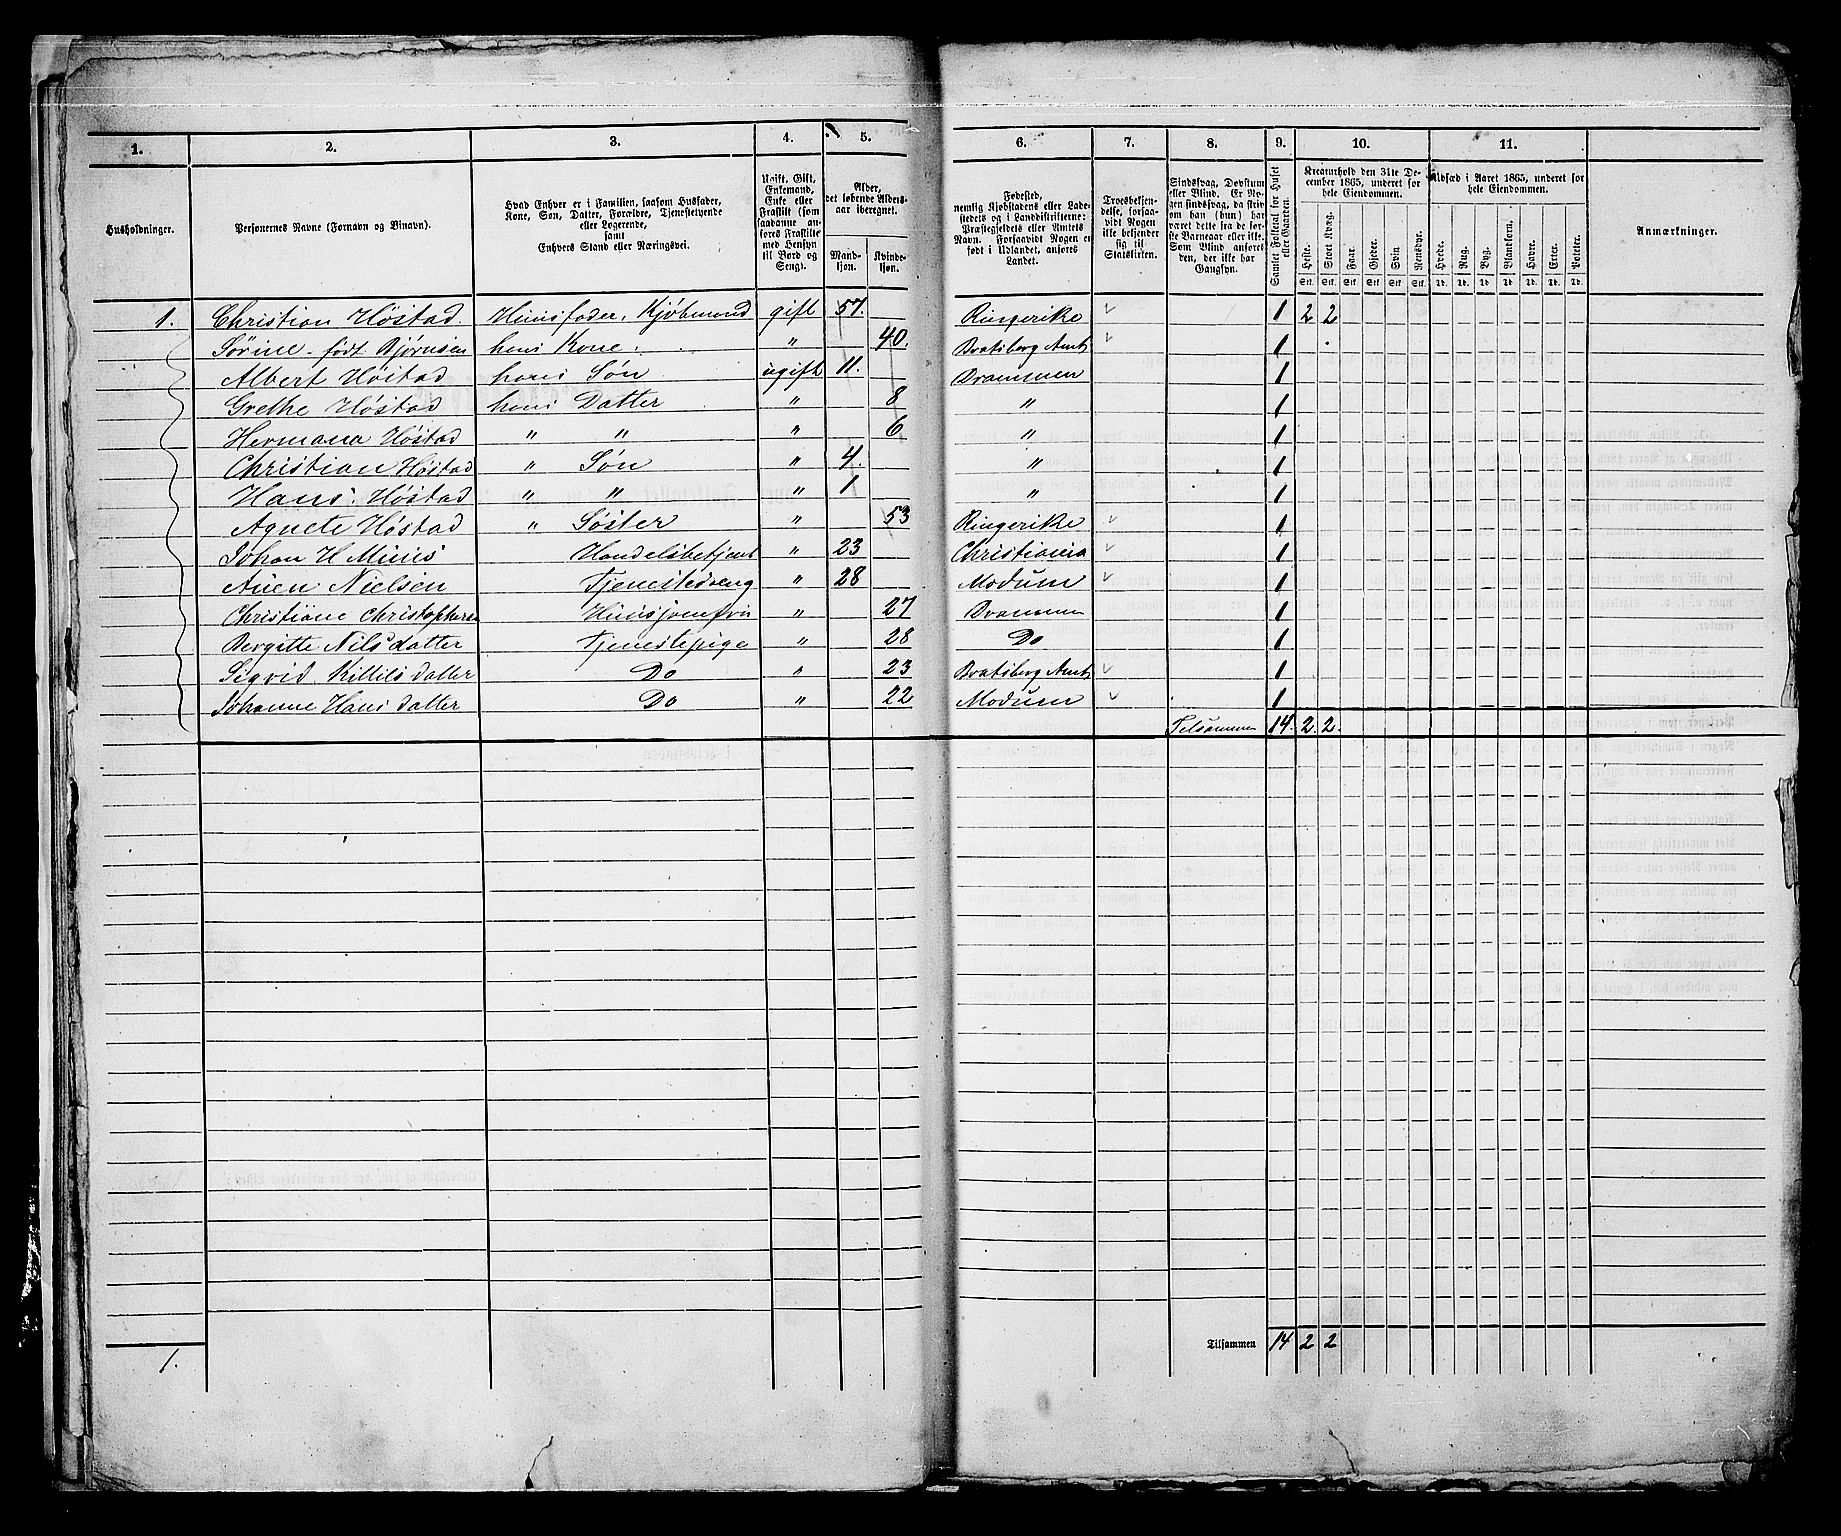 1. 2. 3. 4. 5. 6. 7. 8. 9. 10. 11.
Husholdninger.
Personernes Navne (Fornavn og Binavn).
Hvad Enhver er i Familien, saasom Husfader,
Kone, Søn, Datter, Forældre, Tjenestetyende
eller Logerende,
samt
Enhvers Stand eller Næringsvei.
Ugift, Gift,
Enkemand,
Enke eller
Fraskilt (som
saadanne an-
føres Fraskilte
med Hensyn
til Bord og
Seng).
Alder,
det løbende Alders-
aar iberegnet.
Mand-
kjøn.
Kvinde-
kjøn.
Fødested,
nemlig Kjøbstadens eller Lade-
stedets og i Landdistrikterne:
Præstegjeldets eller Amtets
Navn. Forsaavidt Nogen er
født i Udlandet, anføres
Landet.
Troesbekjen-
delse, forsaa-
vidt Nogen
ikke bekjender
sig til
Statskirken.
Sindssvag, Døvstum
eller Blind. Er No-
gen sindssvag, da skriv
om han (hun) har
været dette fra de før-
ste Barneaar eller ikke.
Som Blind anføres
den, der ikke har
Gangsyn.
Samlet Folketal for Huset
eller Gaarden.
Kreaturhold den 31te De-
cember 1865, underet for
hele Eiendommen.
Heste. Stort Kvæg. Faar. Gjeder. Svin. Rensdyr.
Stk. Stk. Stk. Stk. Stk. Stk.
Udsæd i Aaret 1865, underet for
hele Eiendommen.
Hvede. Rug. Byg. Blandkorn. Havre. Erter. Poteter.
Td. Td. Td. Td. Td. Td. Td.
Anmærkninger.
1. Christian Høstad. Huusfader, Kjøbmand gift 57. Ringerike 1 2 2
Sørine født Bjørnsen hans Kone. " 40. Bratsberg Amt 1
Albert Høstad hans Søn ugift 11. Drammen 1
Grethe Høstad hans Datter " 8 " 1
Hermana Høstad " " " 6 " 1
Christian Høstad " Søn " 4. " 1
Hans Høstad " " " 1 " 1
Agnete Høstad " Søster " 53 Ringerike 1
Johan H Handelsbetjent " 23 Christiania 1
Nielsen Tjenestedreng " 28 Modum 1
Christiane Christophersen Huusjomfru " 27 Drammen 1
Bergitte Nilsdatter Tjenestepige " 28 Do 1
Sigrid Kittilsdatter Do " 23 Bratsberg Amt 1
Johanne Hansdatter Do " 22 Modum 1
Tilsammen 14. 2. 2.
Tilsammen 14 2 2
1.